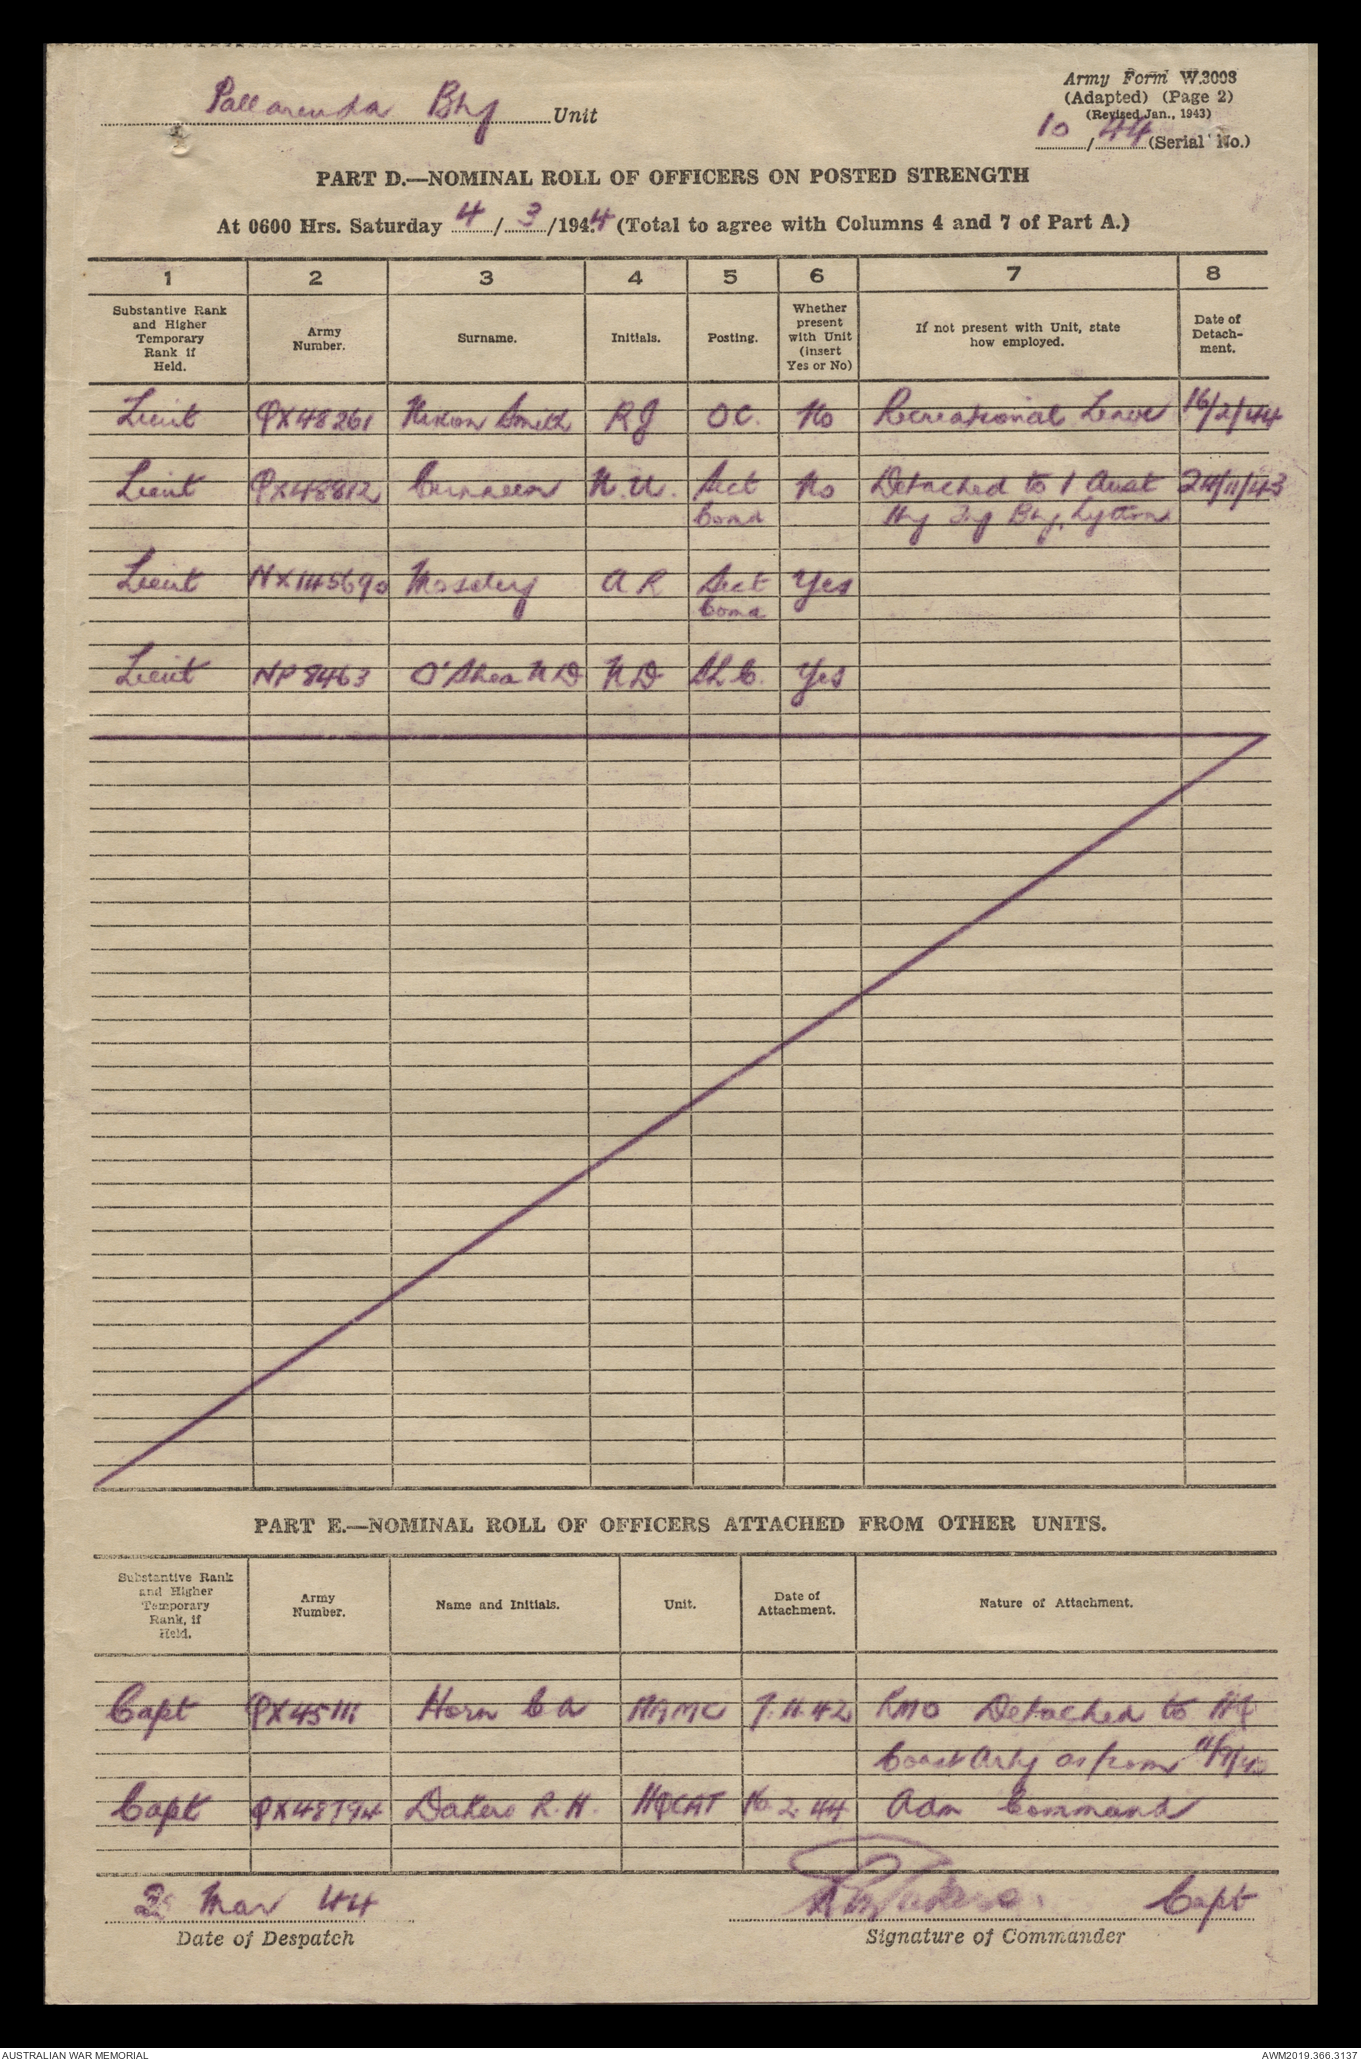 Pallarenda Bty Unit
Army Form W.3008
(Adapted) (Page 2)
(Revised Jan., 1943)
10 / 44 (Serial No.)
PART D.—NOMINAL ROLL OF OFFICERS ON POSTED STRENGTH
At 0600 Hrs. Saturday 4 / 3 /1944 (Total to agree with Columns 4 and 7 of Part A.)
1 2 3 4 5 6 7 8
Substantive Rank and Higher Temporary Rank if Held.
Army Number.
Surname.
Initials.
Posting.
Whether present with Unit (insert Yes or No)
If not present with Unit, state how employed.
Date of Detach-ment.
Lieut QX48261 Nixon Smith RJ OC. No Recreational Leave 16/2/44
Lieut QX48812 N.U. Sect No Detached to 1 Aust 24/11/43
Comd Hy Trg Bty, Lytton
Lieut NX145690 Moseley A R Sect Yes
Comd
Lieut NP8463 O'Shea ND ND SLC. Yes
PART E.—NOMINAL ROLL OF OFFICERS ATTACHED FROM OTHER UNITS.
Substantive Rank and Higher Temporary Rank, if Held.
Army Number.
Name and Initials.
Unit.
Date of Attachment.
Nature of Attachment.
Capt QX45111 Horn C A AAMC 7.11.42 RMO Detached to HQ
Coast Arty as from
Capt QX48794 Dakers R.H. HQCAT 16.2.44 Adm Command
Mar 44
Date of Despatch
RHDakers. Capt
Signature of Commander
AUSTRALIAN WAR MEMORIAL
AWM2019.366.3137